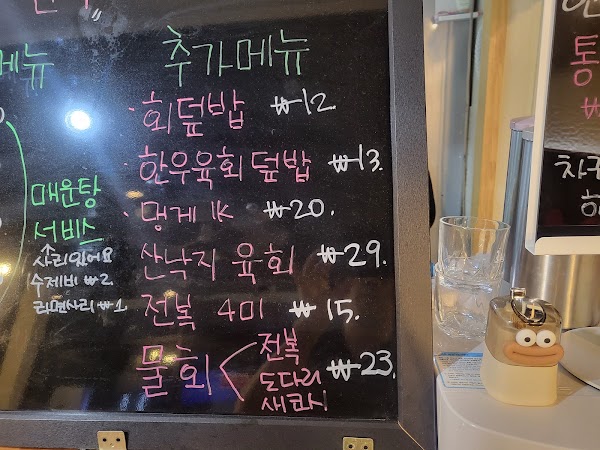 메뉴
추가메뉴
회덮밥 ₩12.
한우육회덮밥 ₩13.
멍게 1K ₩20.
산낙지 육회 ₩29.
전복 4미 ₩15.
물회 전복 도다리 새꼬시 ₩23.
매운탕
서비스
사리있어요
수제비 ₩2
라면사리 ₩1
통
₩